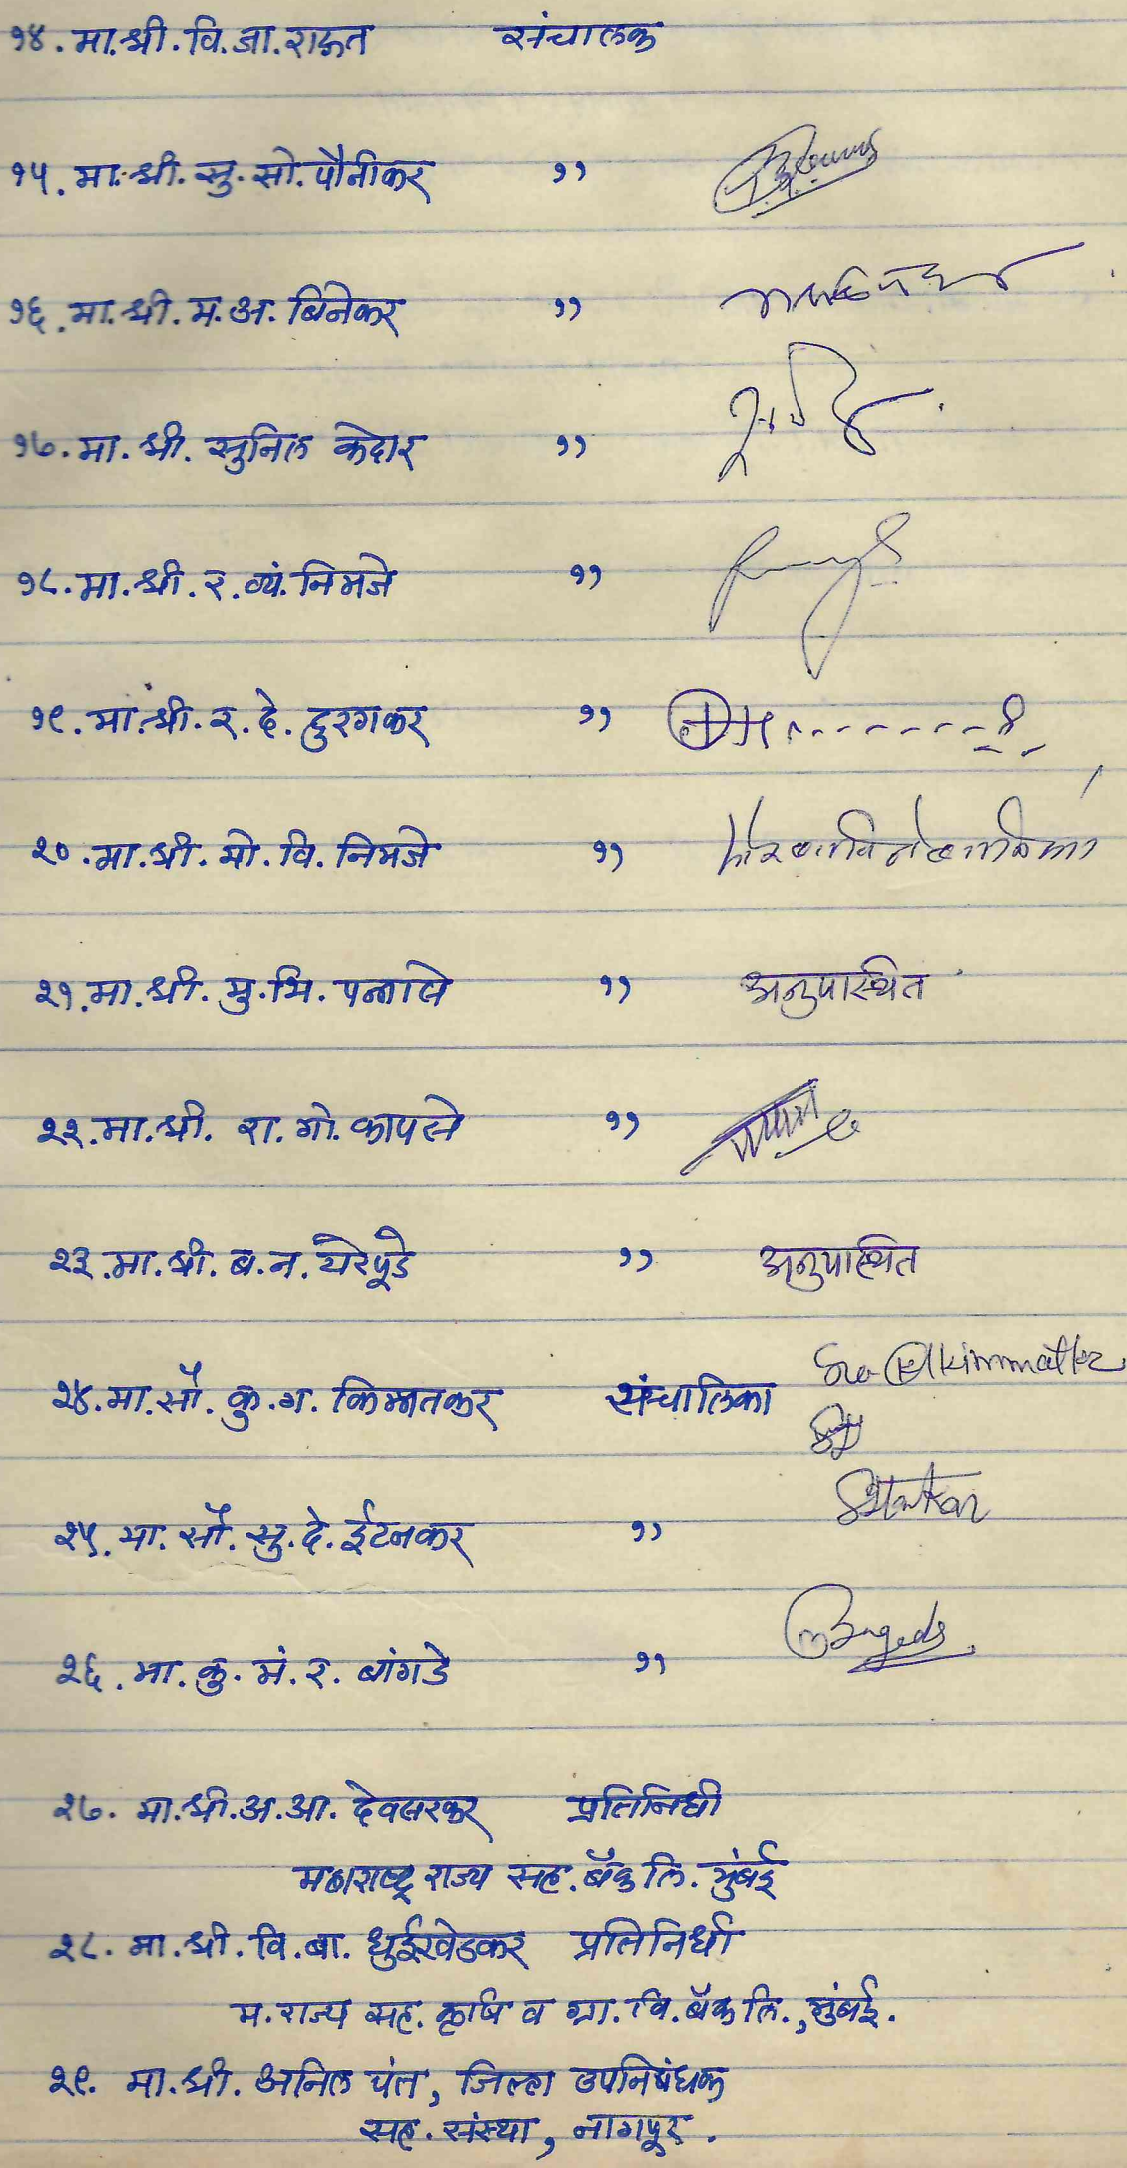 १४. मा.श्री. वि. जा. राऊत संचालक
१५. मा.श्री. सु. सो. पौनीकर ,,
१६. मा. श्री. म. अ. बिनेकर ,,
१७. मा. श्री. सुनिल केदार ,,
१८. मा. श्री. र. व्यं. निमजे ,,
१९. मा. श्री. र. दे. दुरगकर ,,
२०. मा. श्री. मो. वि. निमजे ,,
२१. मा. श्री. मु. भि. पन्नासे ,, अनुपास्थित
२२. मा. श्री. रा. गो. कापसे ,,
२३. मा. श्री. ब. न. येरपूडे ,, अनुपास्थित
२४. मा. सौ. कु. ग. किम्मतकर संचालिका
२५. मा. सौ. सु. दे. ईटनकर ,,
२६. मा. कु. मं. र. बांगडे ,,
२७. मा. श्री. अ. आ. देवसरकर प्रतिनिधी
महाराष्ट्र राज्य सह. बँक लि. मुंबई
२८. मा. श्री. वि. बा. धुईखेडकर प्रतिनिधी
म. राज्य सह. कृषि व ग्रा. वि. बँक लि., मुंबई.
२९. मा. श्री. अनिल पंत, जिल्हा उपनिबंधक
सह. संस्था, नागपूर.